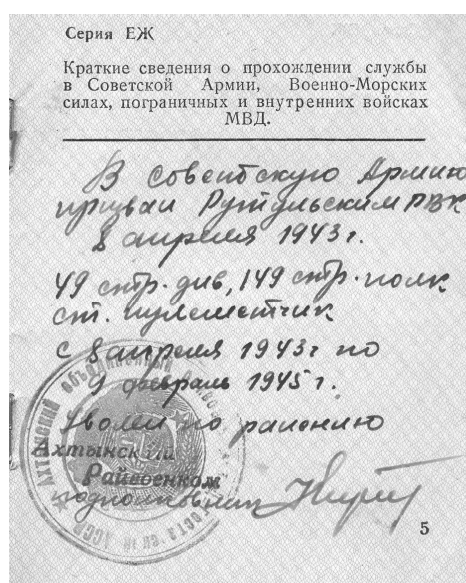 Серия ЕЖ
Краткие сведения о прохождении службы
в Советской Армии, Военно-Морских
силах, пограничных и внутренних войсках
МВД.
В Советскую Армию
призван Рутульским РВК
8 апреля 1943 г.
49 стр. див, 149 стр. полк
ст. пулеметчик
с 8 апреля 1943 г по
9 февраль 1945 г.
Уволен по ранению
Ахтынский
Райвоенком
подполковник
АХТЫНСКИЙ ОБЪЕДИНЕННЫЙ
5